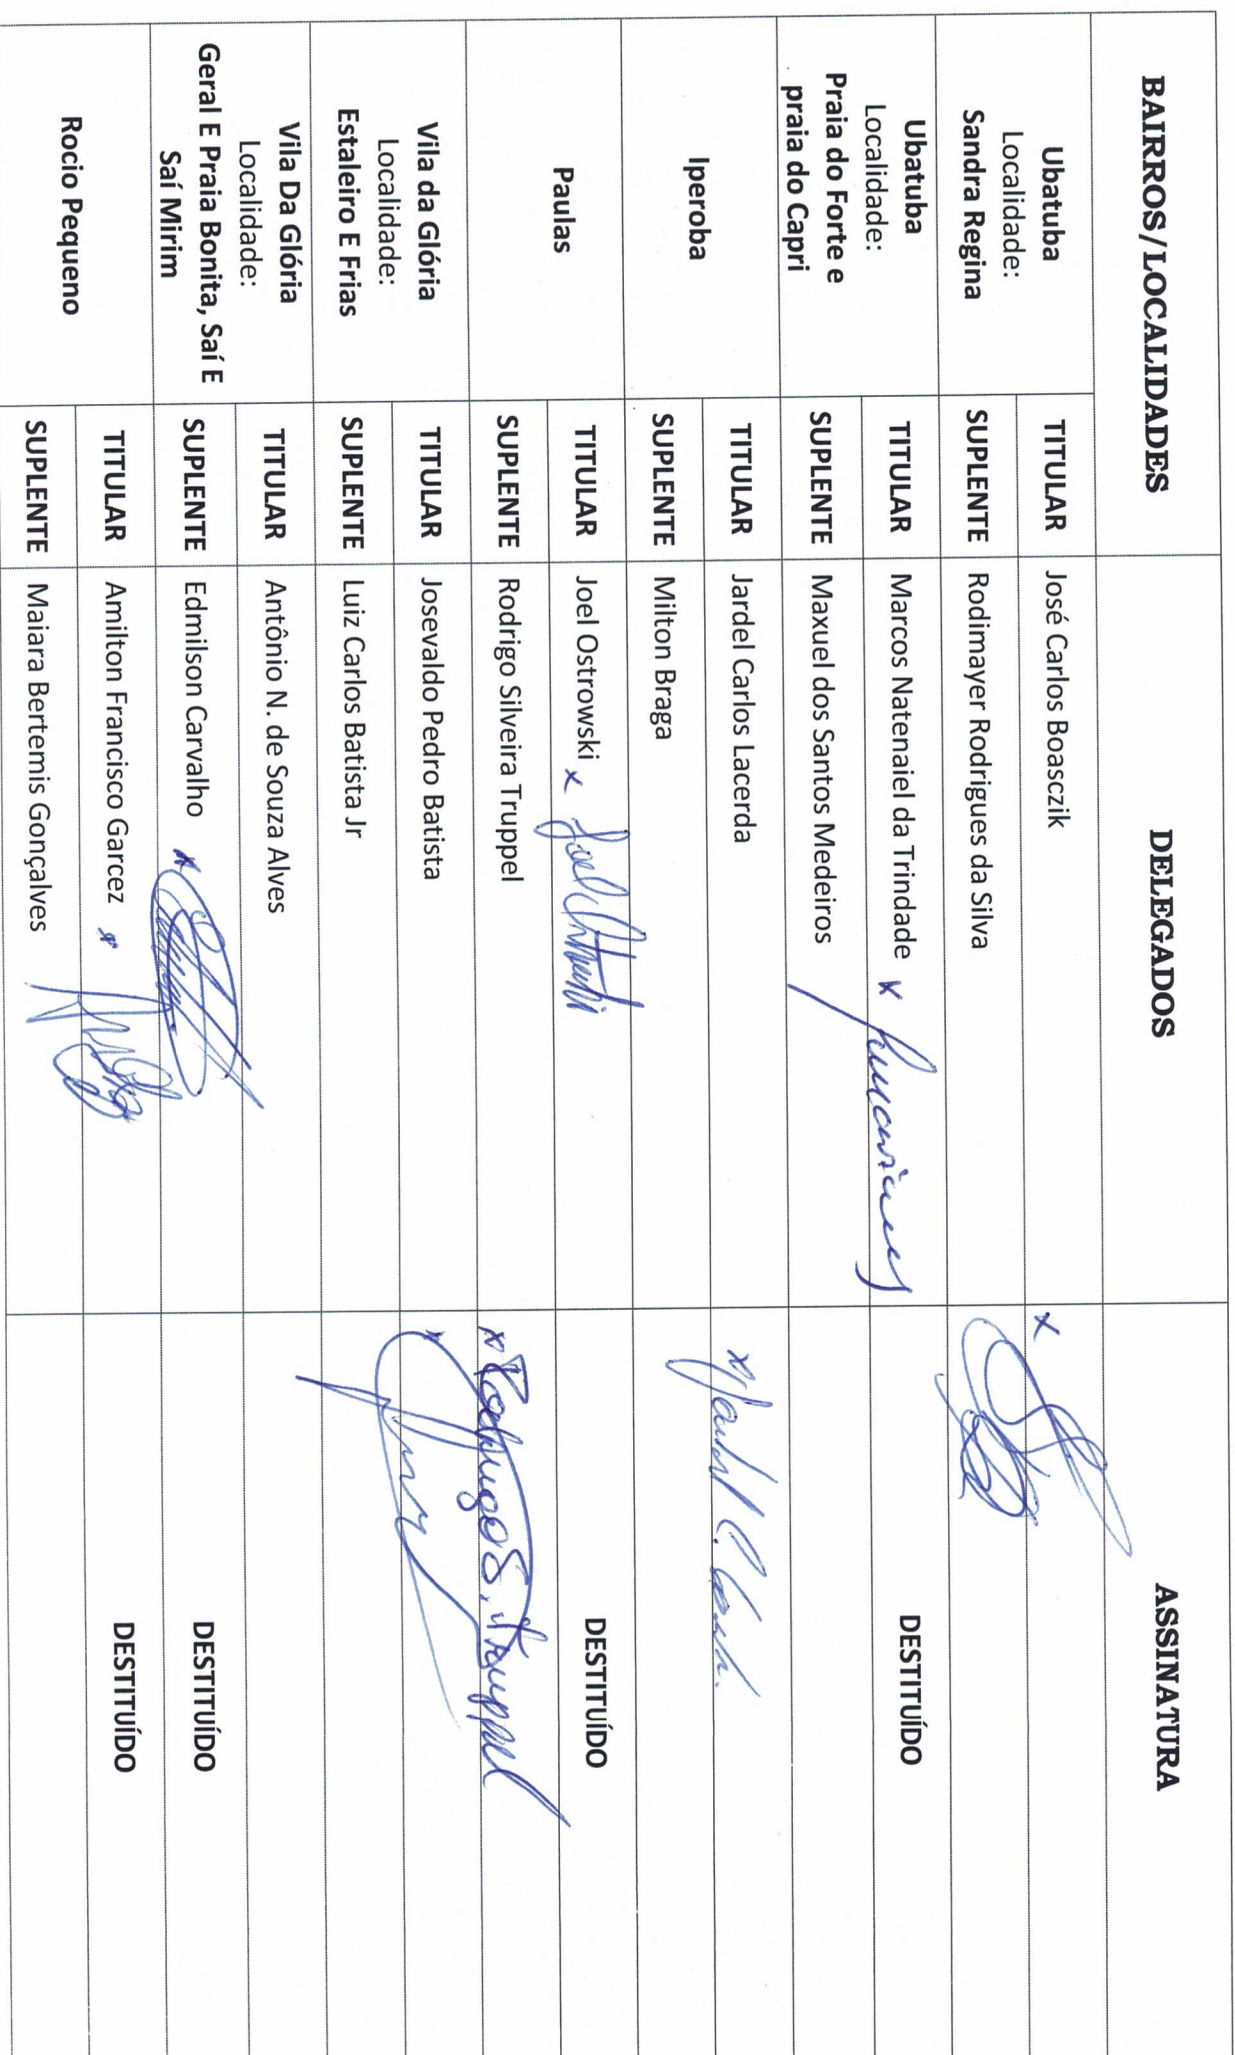 BAIRROS/LOCALIDADES DELEGADOS ASSINATURA
Ubatuba
Localidade:
Sandra Regina
TITULAR José Carlos Boasczik
SUPLENTE Rodimayer Rodrigues da Silva
Ubatuba
Localidade:
Praia do Forte e
praia do Capri
TITULAR Marcos Natenaiel da Trindade x DESTITUÍDO
SUPLENTE Maxuel dos Santos Medeiros
Iperoba
TITULAR Jardel Carlos Lacerda x Jardel C.
SUPLENTE Milton Braga
Paulas
TITULAR Joel Ostrowski x Joel DESTITUÍDO
SUPLENTE Rodrigo Silveira Truppel x Rodrigo S. Truppel
Vila da Glória
Localidade:
Estaleiro E Frias
TITULAR Josevaldo Pedro Batista
SUPLENTE Luiz Carlos Batista Jr
Vila Da Glória
Localidade:
Geral E Praia Bonita, Saí E
Saí Mirim
TITULAR Antônio N. de Souza Alves
SUPLENTE Edmilson Carvalho x DESTITUÍDO
Rocio Pequeno
TITULAR Amilton Francisco Garcez x DESTITUÍDO
SUPLENTE Maiara Bertemis Gonçalves